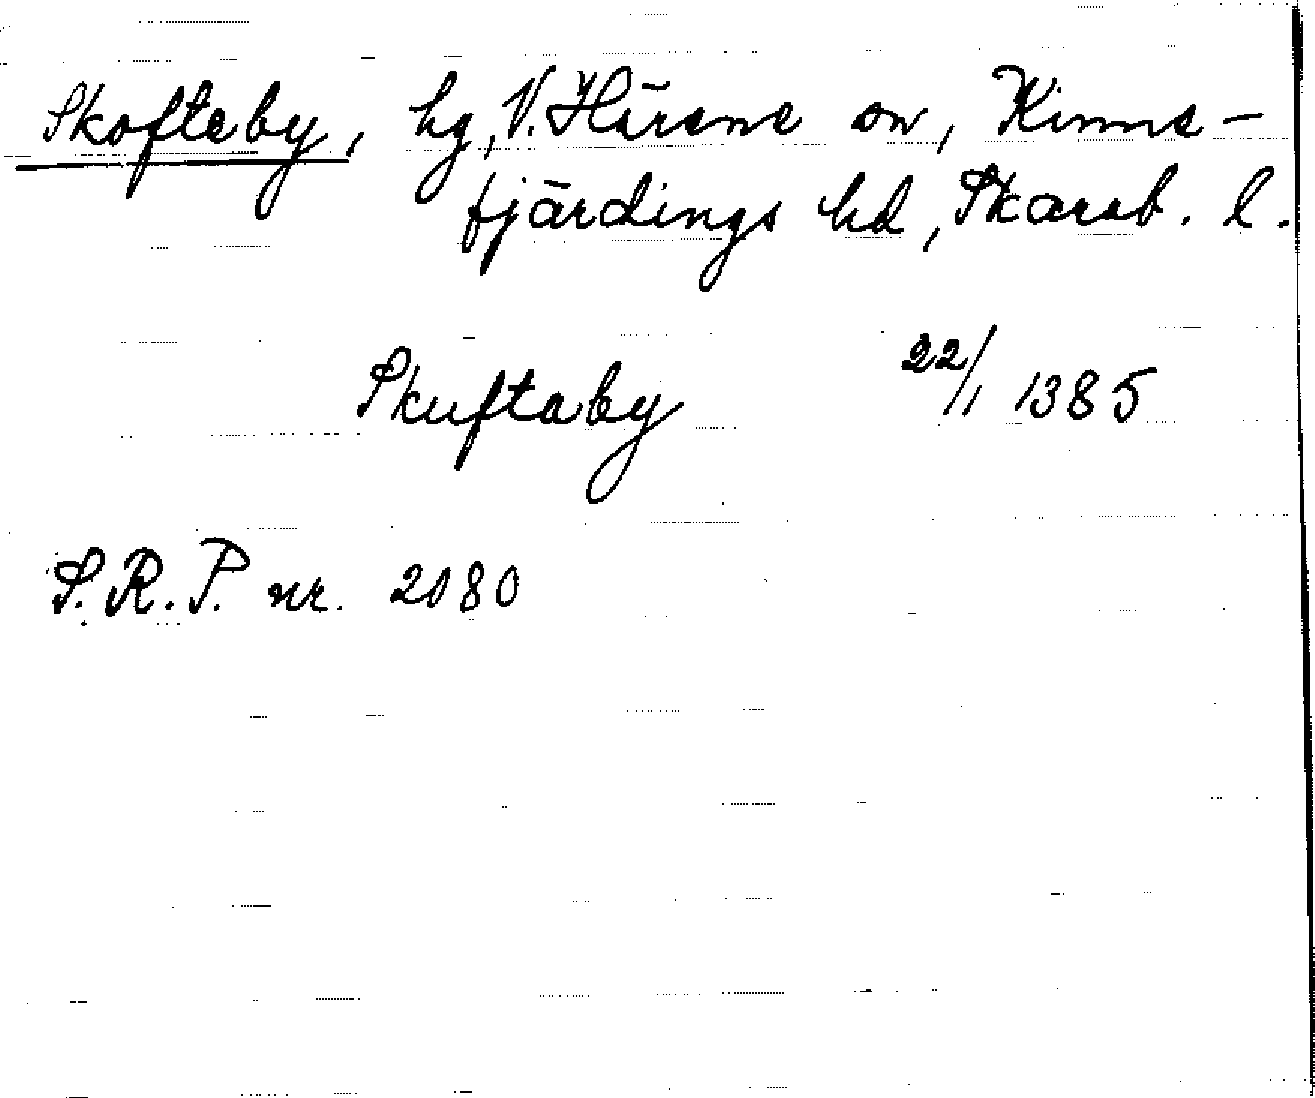 Skofteby, hg, V. Härene sn, Kinne-
fjärdings hd, Skarab. l.
Skuftaby 22/1 1385
S.R.P. nr. 2080